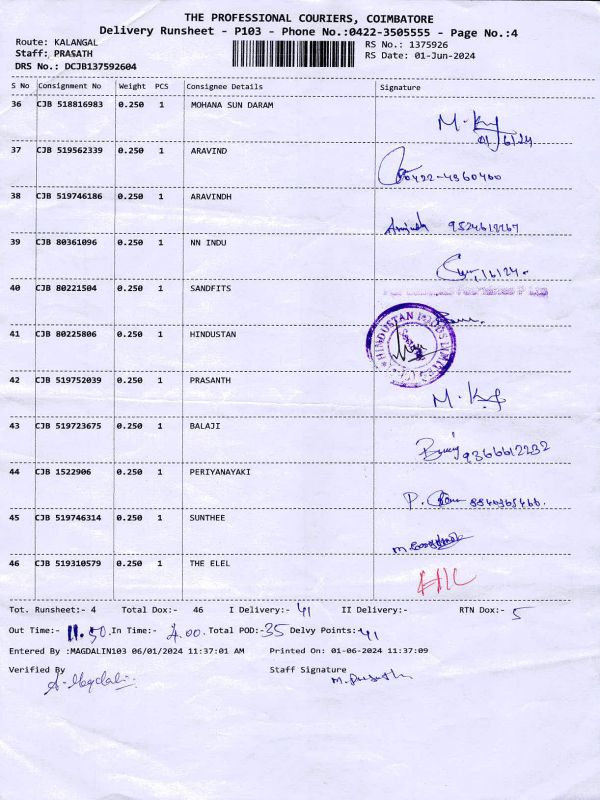 THE PROFESSIONAL COURIERS, COIMBATORE
Delivery Runsheet - P103 - Phone No.:0422-3505555 - Page No.:4
Route: KALANGAL RS No.: 1375926
Staff: PRASATH RS Date: 01-Jun-2024
DRS No.: DCJB137592604
S No Consignment No Weight PCS Consignee Details Signature
36 CJB 518816983 0.250 1 MOHANA SUN DARAM
37 CJB 519562339 0.250 1 ARAVIND
0422-4360400
38 CJB 519746186 0.250 1 ARAVINDH
39 CJB 80361096 0.250 1 NN INDU
40 CJB 80221504 0.250 1 SANDFITS
41 CJB 80225806 0.250 1 HINDUSTAN
HINDUSTAN FOODS LIMITED
42 CJB 519752039 0.250 1 PRASANTH
43 CJB 519723675 0.250 1 BALAJI
44 CJB 1522906 0.250 1 PERIYANAYAKI
45 CJB 519746314 0.250 1 SUNTHEE
46 CJB 519310579 0.250 1 THE ELEL
Tot. Runsheet:- 4 Total Dox:- 46 I Delivery:- 41 II Delivery:- RTN Dox:- 5
Out Time:- 11.50. In Time:- 4.00. Total POD:-35 Delvy Points:41
Entered By :MAGDALIN103 06/01/2024 11:37:01 AM Printed On: 01-06-2024 11:37:09
Verified By Staff Signature
A. Magdali M. Prasath